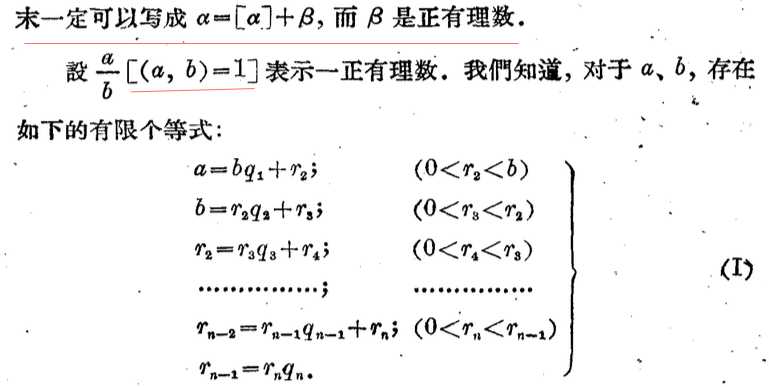 末一定可以写成 α=[α]+β, 而 β 是正有理数.
設 a/b [(a, b)=1] 表示一正有理数. 我們知道, 对于 a、b, 存在
如下的有限个等式:
a=bq₁+r₂; (0<r₂<b)
b=r₂q₂+r₃; (0<r₃<r₂)
r₂=r₃q₃+r₄; (0<r₄<r₃)
……………; ……………
rₙ₋₂=rₙ₋₁qₙ₋₁+rₙ; (0<rₙ<rₙ₋₁)
rₙ₋₁=rₙqₙ.
(I)